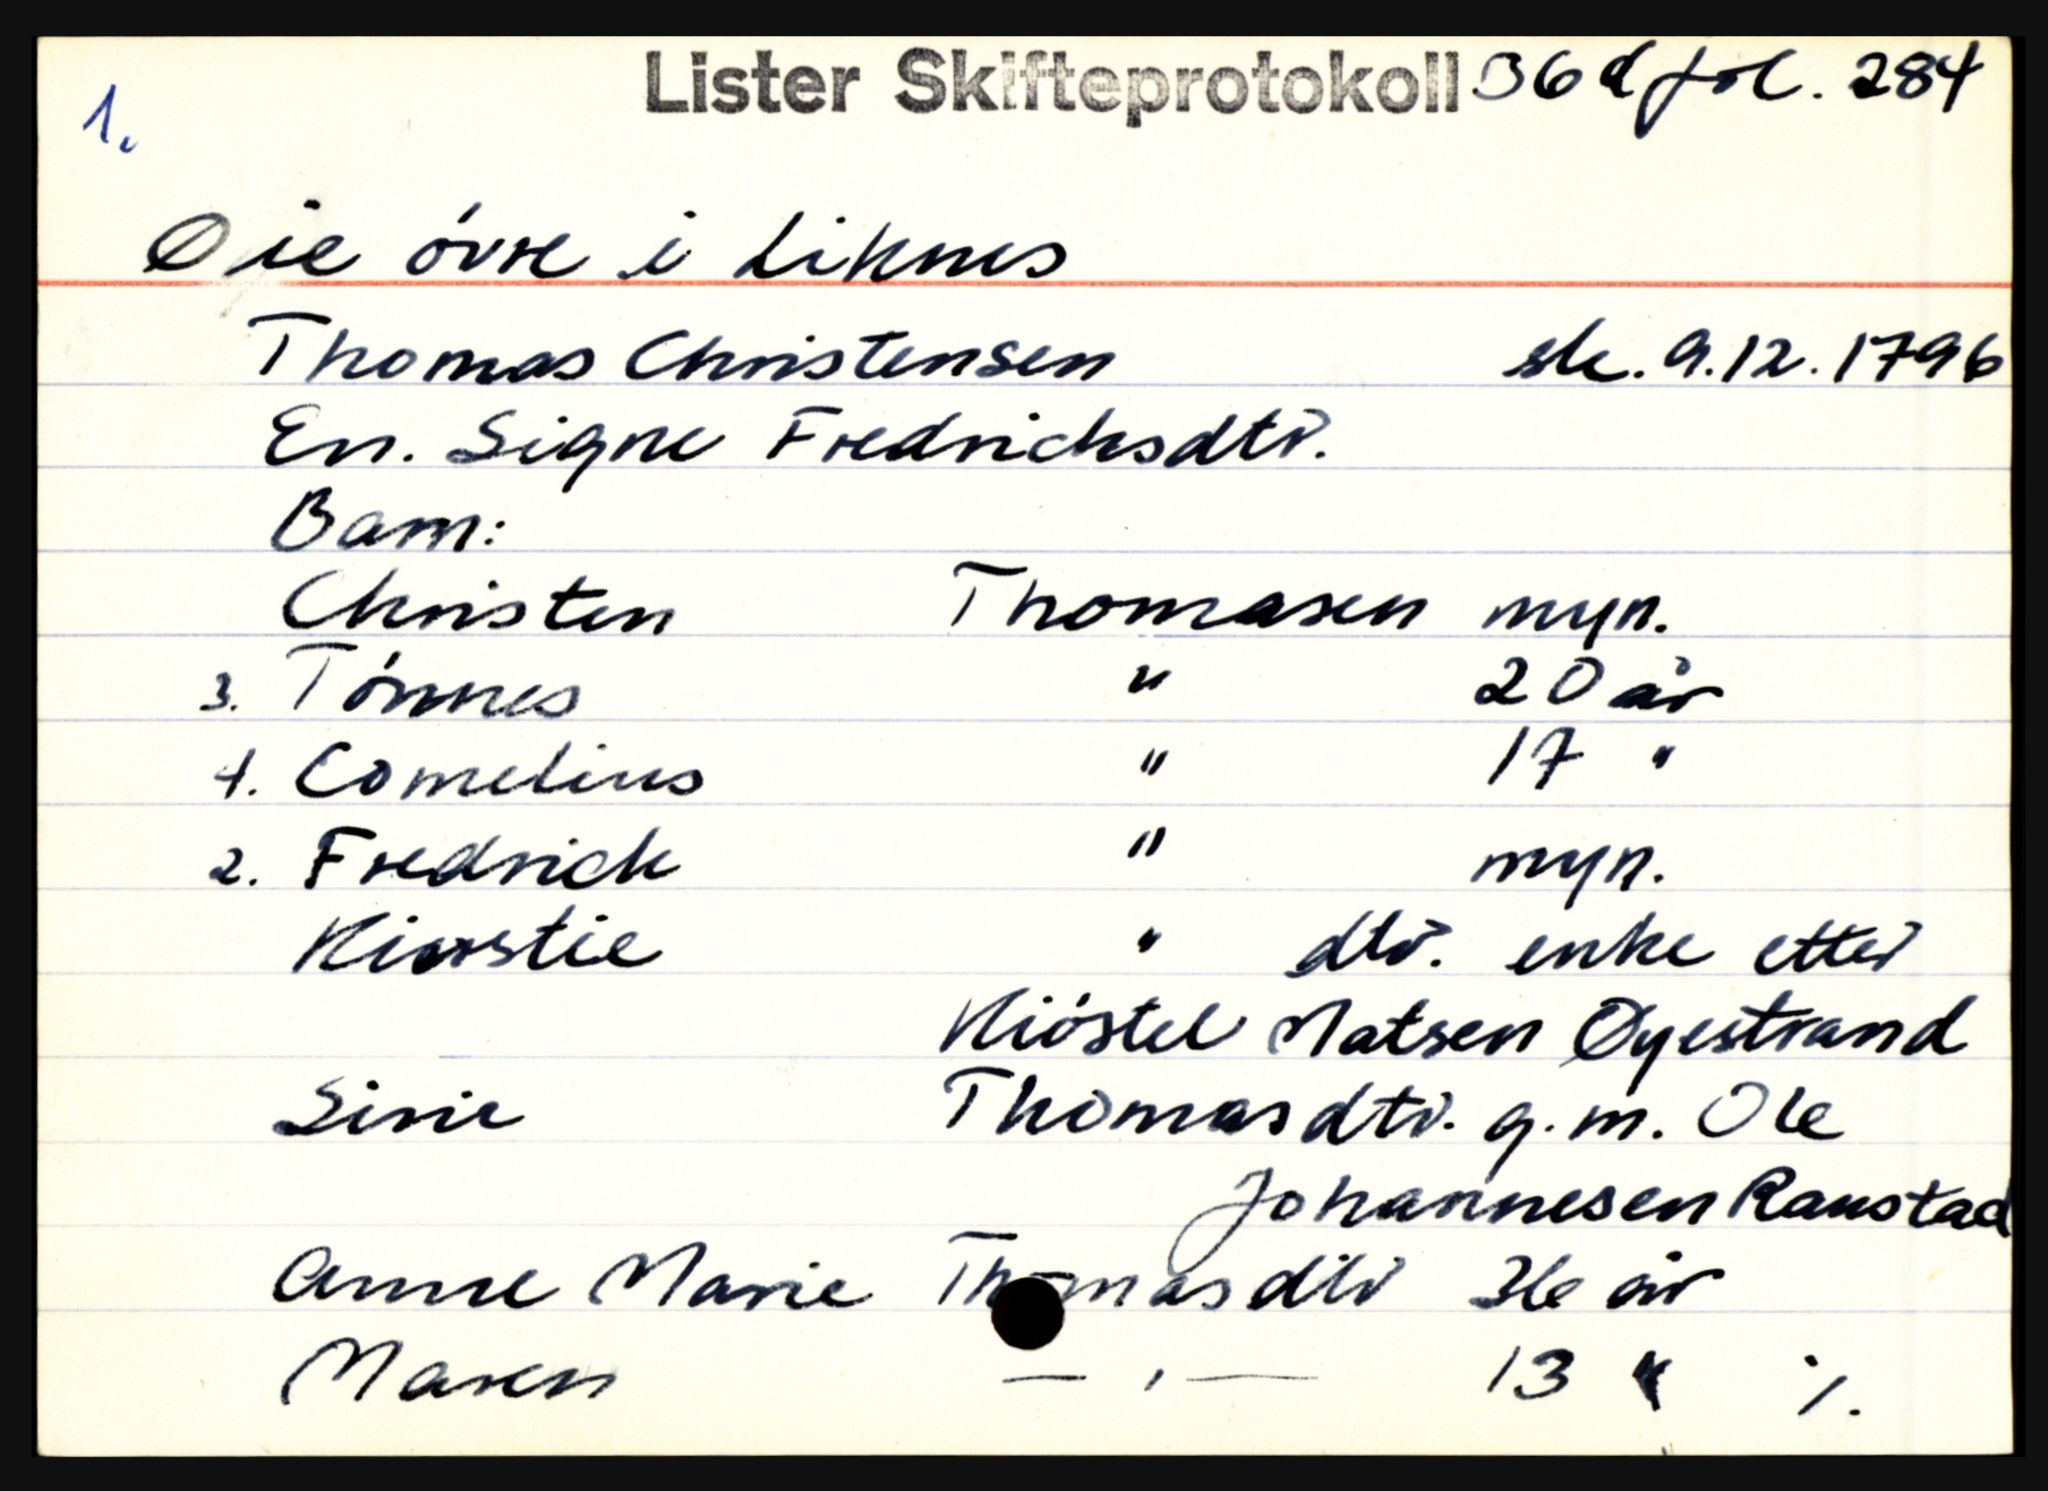 Lister Skifteprotokoll B6d fol. 284
1.
Øie övre i Liknes
Thomas Christensen sk. 9.12.1796
En. Signe Fredrichsdtr.
Barn:
Christen Thomasen myn.
3. Tönnes " 20 år
4. Cornelius " 17 "
2. Fredrich " myn.
Kirstie " dtr. enke etter
Kiöstel Matsen Øyestrand
Sirie Thomasdtr. g.m. Ole
Johannesen Raustad
Anne Marie Thomasdtr år
Maren — " — 13 " ⁒